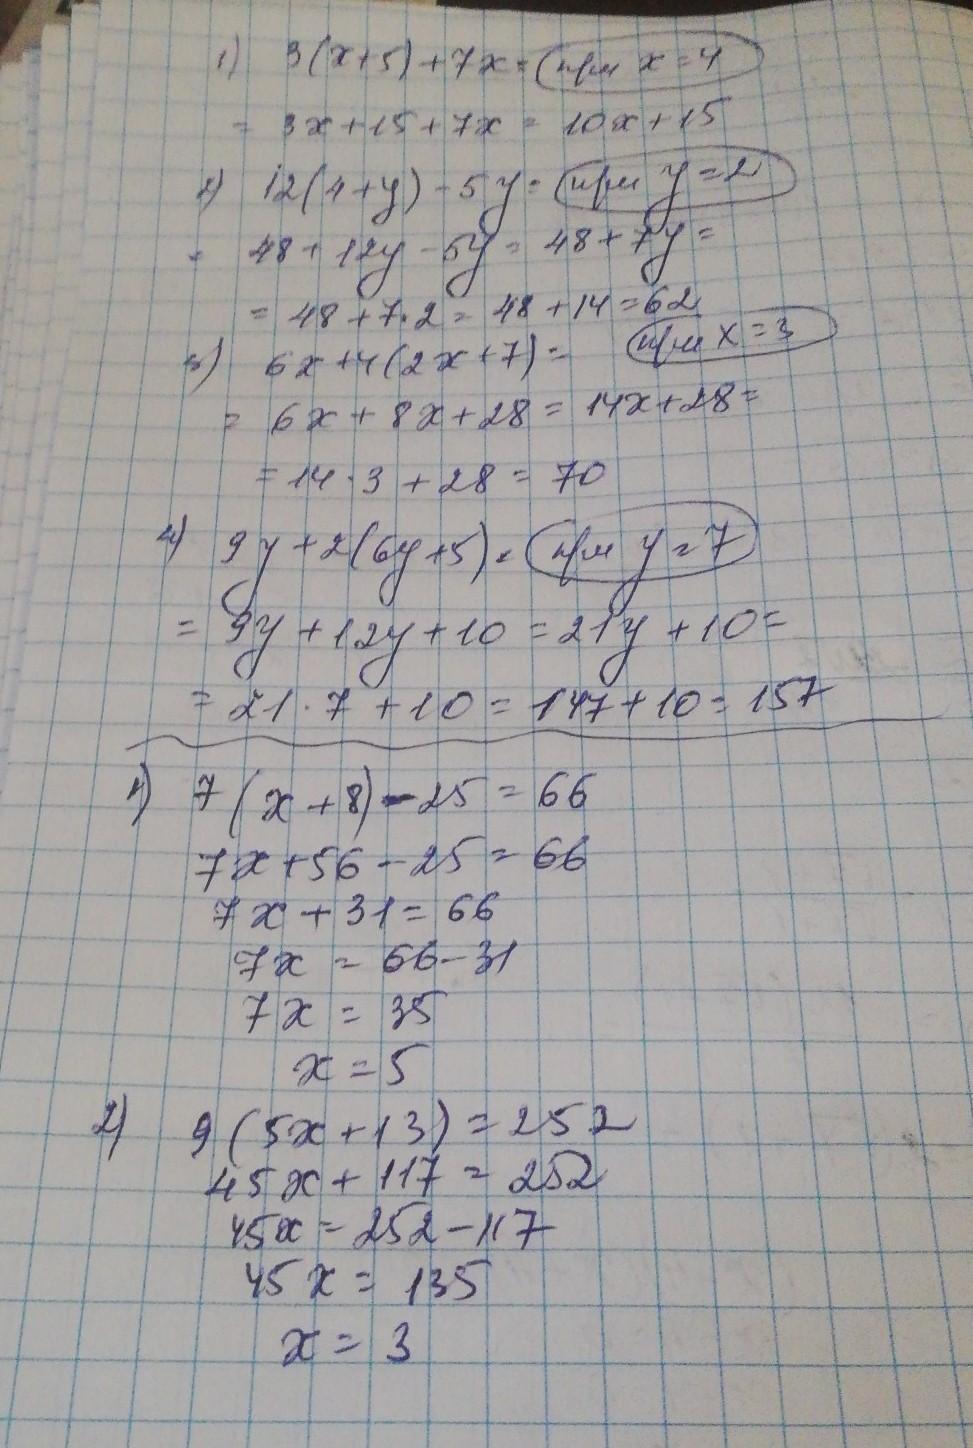 1) 3(x+5)+7x= при x=4
= 3x+15+7x = 10x+15
2) 12(4+y)-5y= при y=2
= 48+12y-5y = 48+7y=
= 48+7·2= 48+14=62
3) 6x+4(2x+7)= при x=3
= 6x+8x+28=14x+28=
=14·3+28=70
4) 9y+2(6y+5)= при y=7
= 9y+12y+10=21y+10=
= 21·7+10=147+10=157
1) 7(x+8)-25=66
7x+56-25=66
7x+31=66
7x=66-31
7x=35
x=5
2) 9(5x+13)=252
45x+117=252
45x=252-117
45x=135
x=3